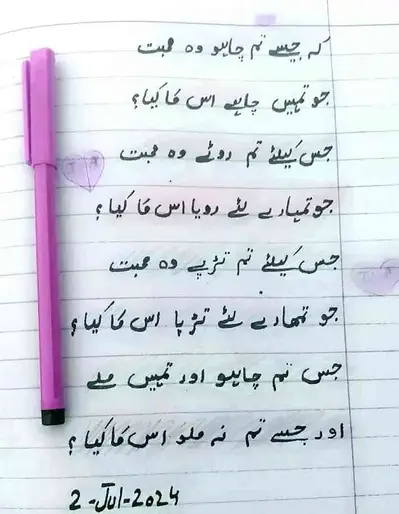 کہ جسے تم چاہو وہ محبت
جو تمہیں چاہے اس کا کیا؟
جس کیلئے تم روئے وہ محبت
جو تمہارے لئے رویا اس کا کیا؟
جس کیلئے تم تڑپے وہ محبت
جو تمھارے لئے تڑپا اس کا کیا؟
جس تم چاہو اور تمہیں ملے
اور جسے تم نہ ملو اس کا کیا؟
2-Jul-2024